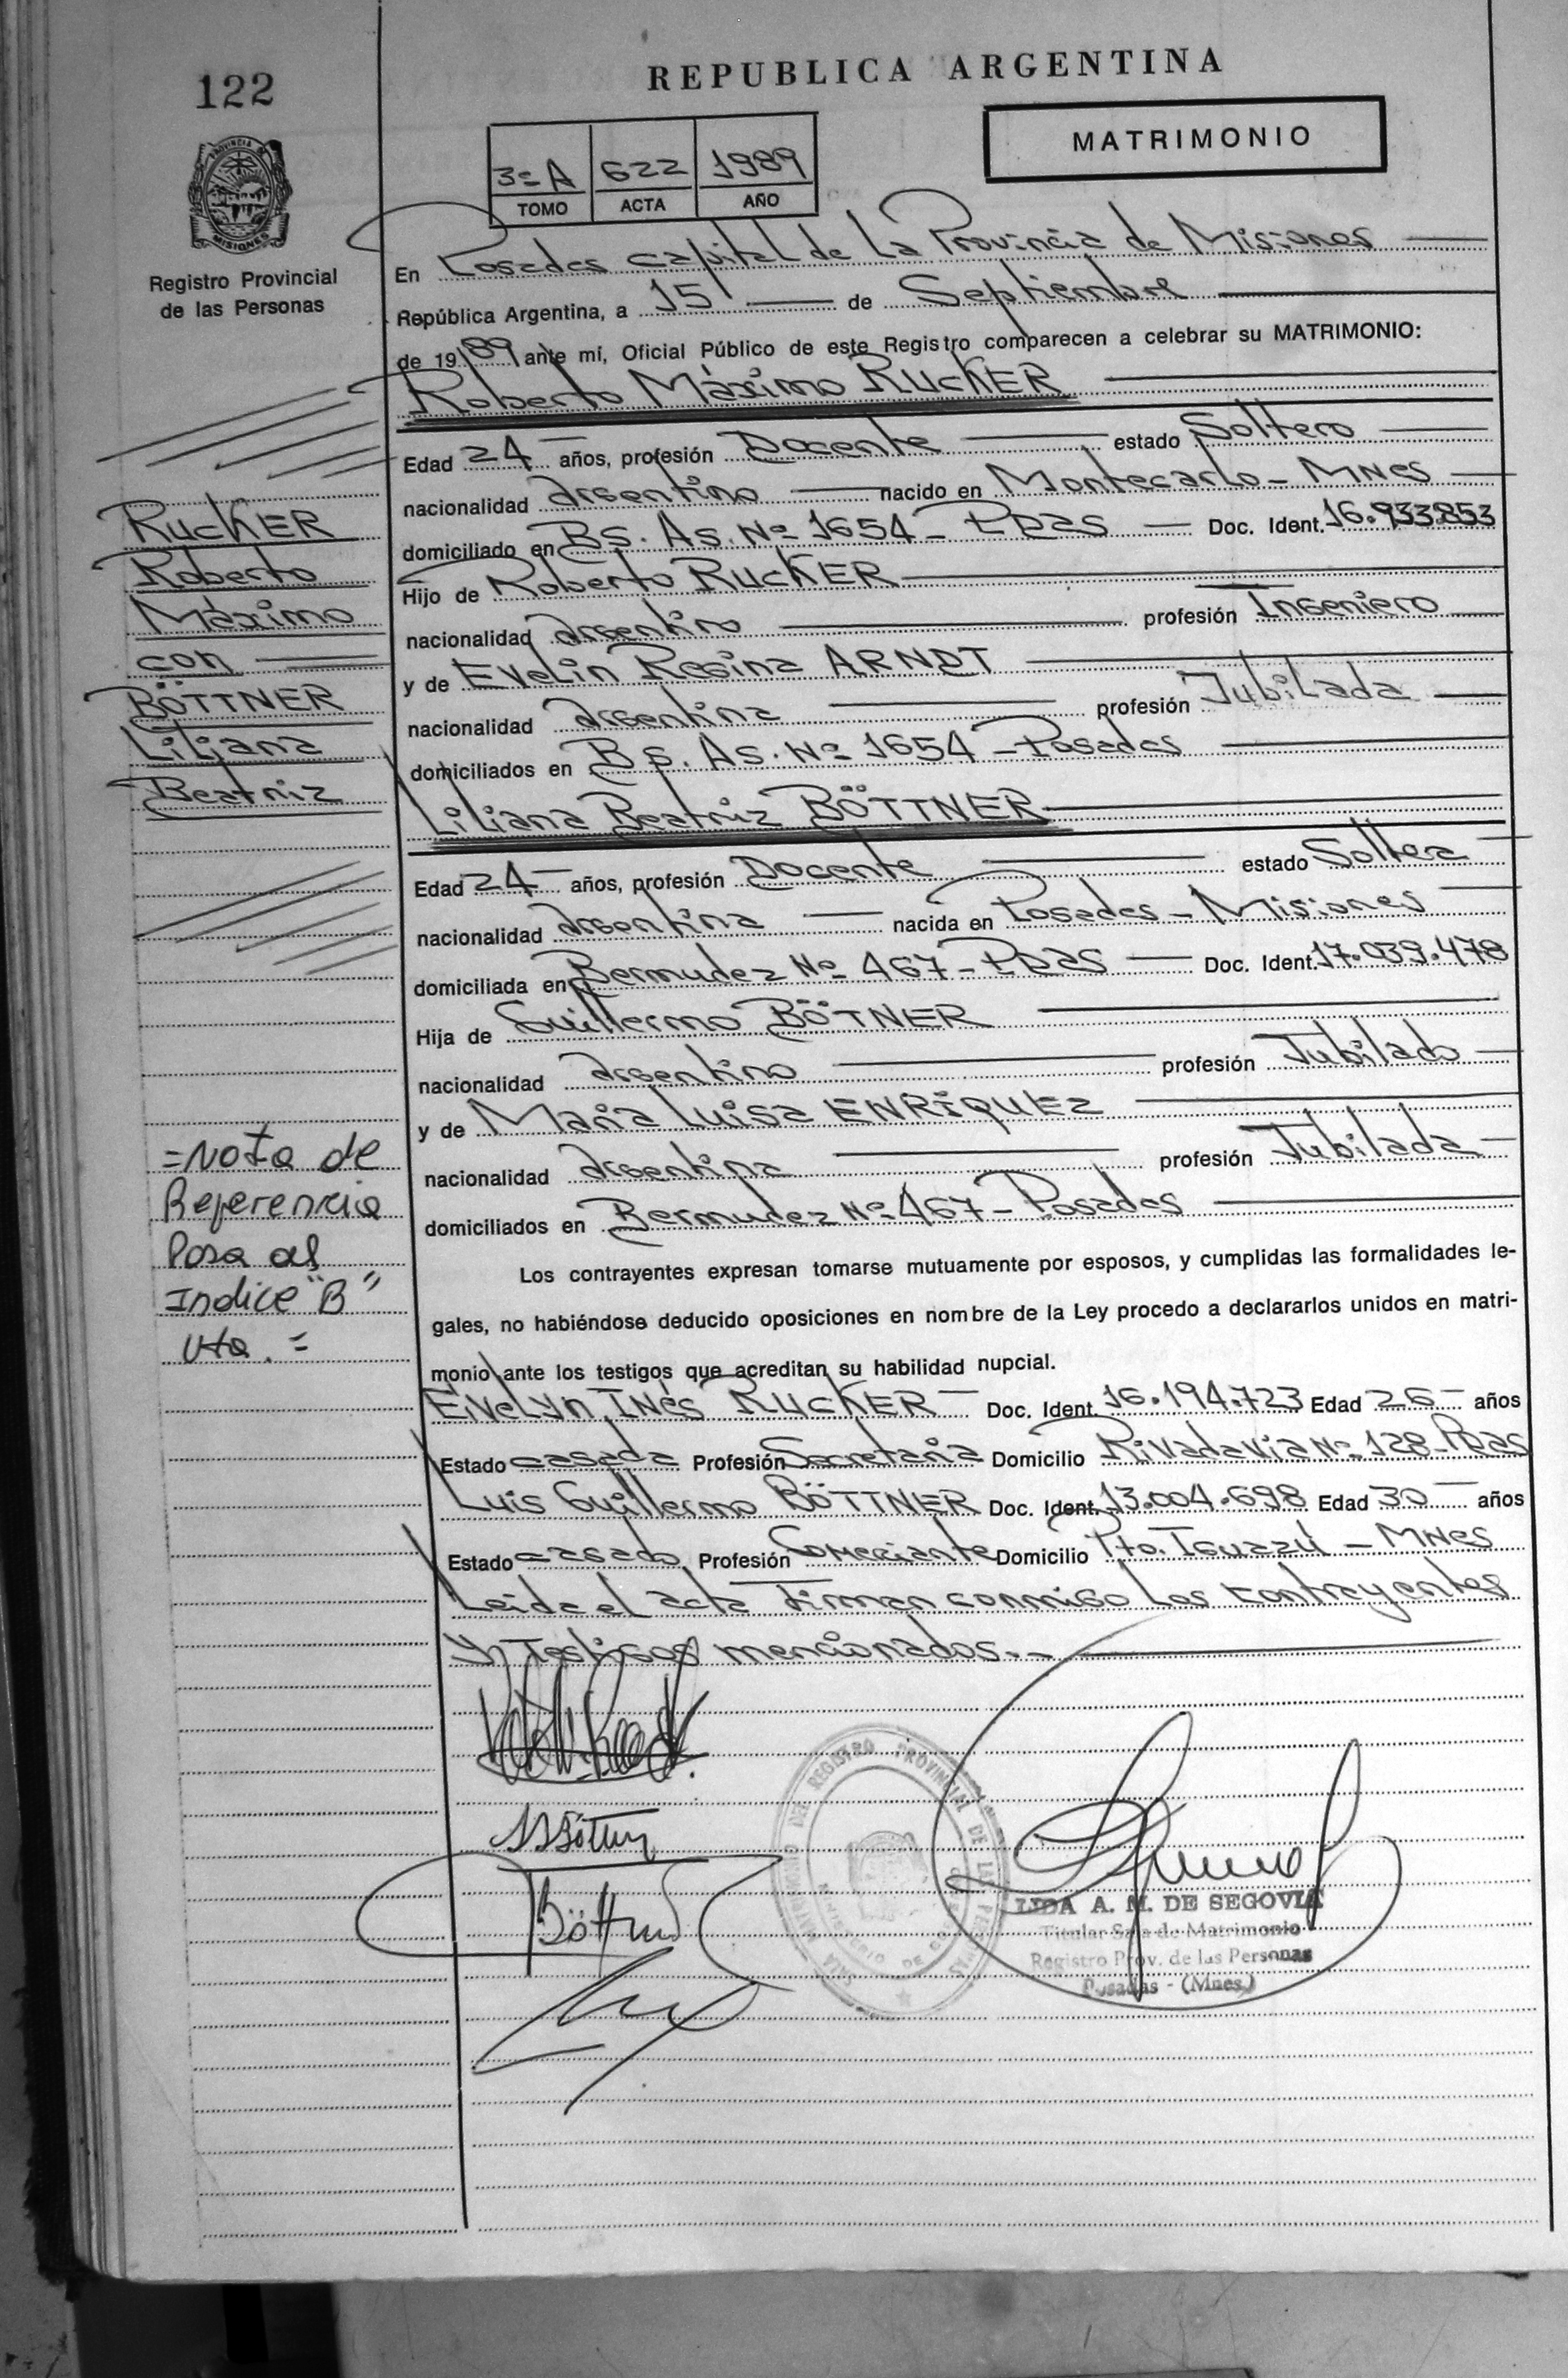 122
REPUBLICA ARGENTINA
MATRIMONIO
3º A 622 1989
TOMO ACTA AÑO
PROVINCIA DE MISIONES
Registro Provincial
de las Personas
En Posadas capital de La Provincia de Misiones
República Argentina, a 15 de Septiembre
de 1989 ante mí, Oficial Público de este Registro comparecen a celebrar su MATRIMONIO:
Roberto Máximo RUCKER
Edad 24 años, profesión Docente estado Soltero
nacionalidad argentino nacido en Montecarlo - MNes
domiciliado en BS. As. Nº 1654 - Pdas Doc. Ident. 16.933.853
Hijo de Roberto RUCKER
nacionalidad argentino profesión Ingeniero
y de Evelin Regina ARNDT
nacionalidad argentina profesión Jubilada
domiciliados en Bs. As. Nº 1654 - Posadas
Liliana Beatriz BÖTTNER
Edad 24 años, profesión Docente estado Soltera
nacionalidad argentina nacida en Posadas - Misiones
domiciliada en Bermudez Nº 467 - Pdas Doc. Ident. 17.039.478
Hija de Guillermo BÖTNER
nacionalidad argentino profesión Jubilado
y de María Luisa ENRIQUEZ
nacionalidad argentina profesión Jubilada
domiciliados en Bermudez Nº 467 - Posadas
Los contrayentes expresan tomarse mutuamente por esposos, y cumplidas las formalidades le-
gales, no habiéndose deducido oposiciones en nombre de la Ley procedo a declararlos unidos en matri-
monio ante los testigos que acreditan su habilidad nupcial.
Evelyn Inés RUCKER Doc. Ident. 16.194.723 Edad 26 años
Estado casada Profesión Secretaria Domicilio Rivadavia Nº 128 - Pdas
Luis Guillermo BÖTTNER Doc. Ident. 13.004.698 Edad 30 años
Estado casado Profesión Comerciante Domicilio Pto. Iguazú - MNes
Leida el acta firman conmigo los contrayentes
y testigos mencionados.-
RUCKER
Roberto
Máximo
con
BÖTTNER
Liliana
Beatriz
=Nota de
Referencia
Pasa al
Indice "B"
Vta. =
Böttner
SALA MATRIMONIO DEL REGISTRO PROVINCIAL DE LAS PERSONAS
MINISTERIO DE GOBIERNO
LIDA A. M. DE SEGOVIA
Titular Sala de Matrimonio
Registro Prov. de las Personas
Posadas - (Mnes.)